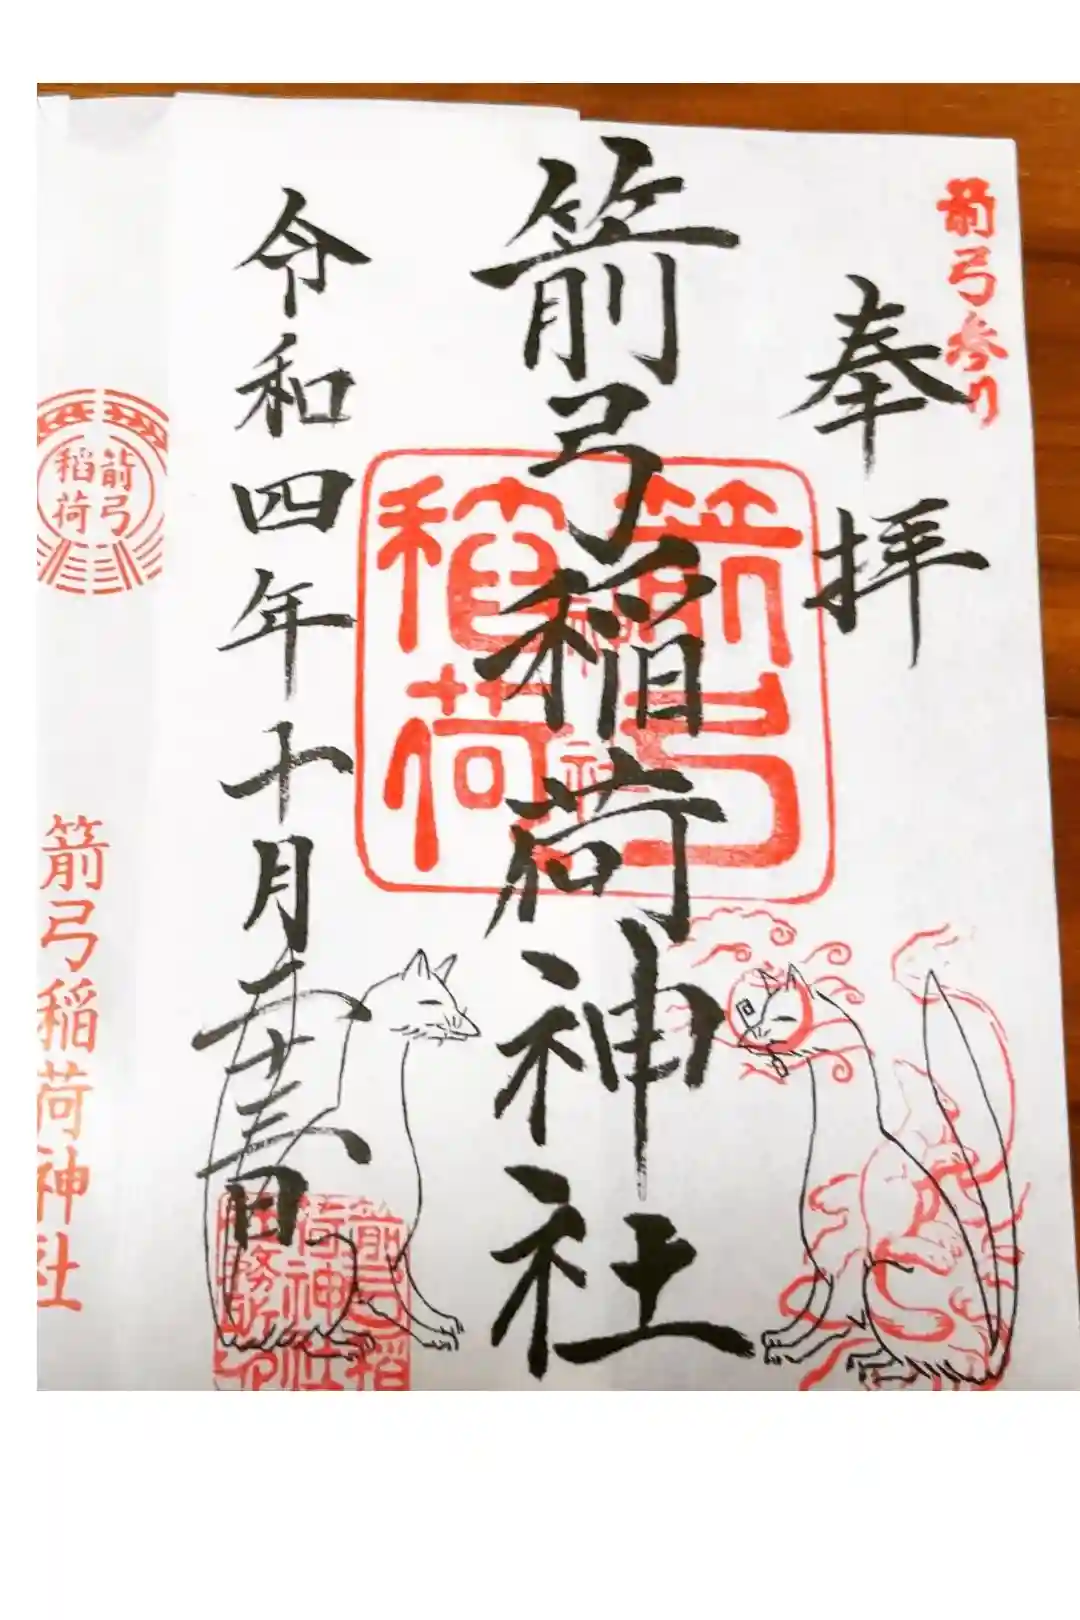 箭弓参り
奉拝
箭弓稲荷神社
箭弓
稲荷
令和四年十月二十三日
箭弓稲
荷神社
社務所印
箭弓
稲荷
箭弓稲荷神社